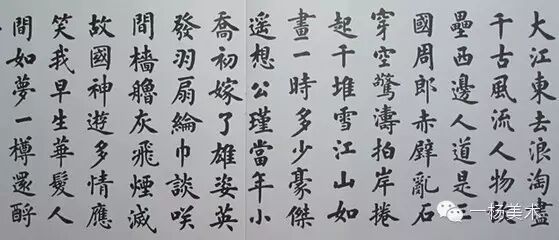 大江東去浪淘盡
千古風流人物故
壘西邊人道是三
國周郎赤壁亂石
穿空驚濤拍岸捲
起千堆雪江山如
畫一時多少豪傑
遥想公瑾當年小
喬初嫁了雄姿英
發羽扇綸巾談咲
間檣艣灰飛煙滅
故國神遊多情應
笑我早生華髮人
間如夢一樽還酹
一杨美术